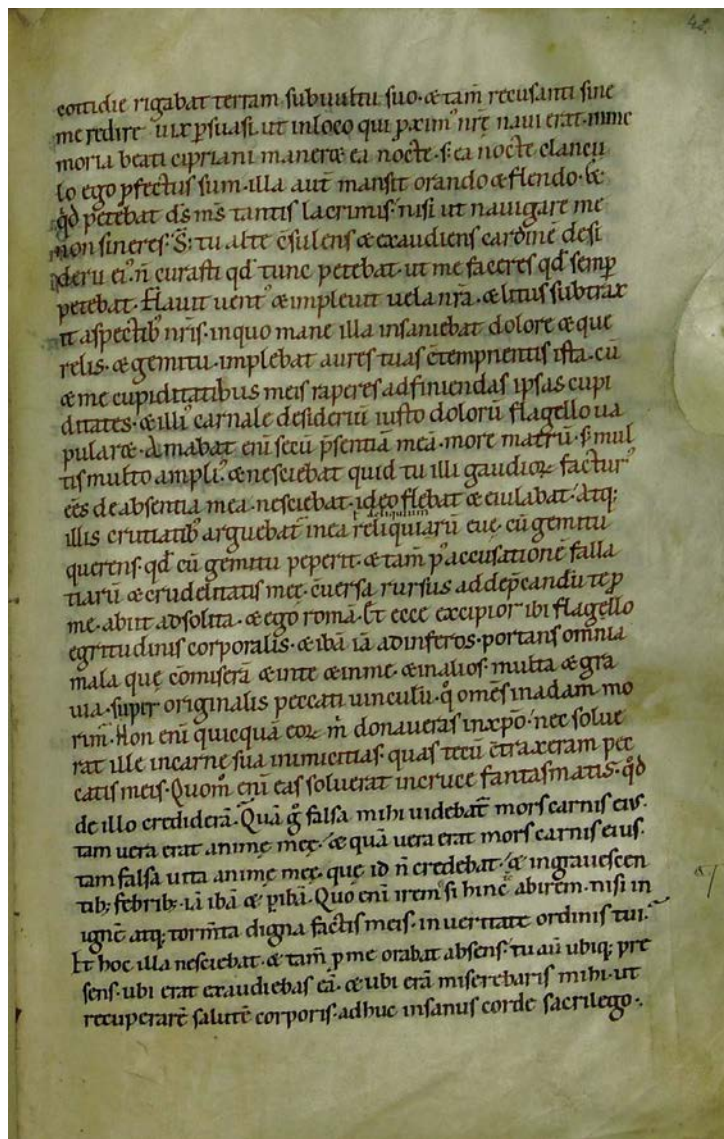 48
cottidie rigabat terram sub uultu suo · & tam̄ recusanti sine
me redire uix p̱suasi · ut in loco qui p̱xim᾽ nr̄ę naui erat · mme
moria beati cipriani maner& ea nocte · s; ea nocte clancu
lo ego p̱fectus sum · illa aut̄ mansit orando & flendo · &
qd̄ petebat ds̄ ms̄ tantis lacrimis · nisi ut nauigare me
non sineres · S; tu alte c̄sulens & exaudiens cardinē desi
derii ei᾽ n̄ curasti qd̄ tunc petebat · ut me faceres qd̄ semp̱
petebat · Flauit uent᾽ & impleuit uela nr̄a · & litus subtrax
it aspectib᾽ nr̄is · in quo mane illa insaniebat dolore & que
relis · & gemitu · implebat aures tuas c̄tempnentis ista · cū
& me cupiditatibus meis raperes ad finiendas ipsas cupi
ditates · & illi᾽ carnale desideriū iusto dolorū flagello ua
pular& · Amabat enī secū p̄sentiā meā · more matrū · s; mul
tis multo ampli᾽ · & nesciebat quid tu illi gaudioꝝ factur᾽
eēs de absentia mea · nesciebat · ideo flebat & eiulabat · atq;
illis cruciatib᾽ arguebat̄ in ea reliquiarū euę · cū gemitu
querens · qd̄ cū gemitu peperit · & tam̄ p᾽ accusationē falla
tiarū & crudelitatis meę · c̄uersa rursus ad dep̄candū te p̱
me · abiit ad solita · & ego romā · Et ecce excipior ibi flagello
egritudinis corporalis · & ibā iā ad inferos · portans omnia
mala quę cōmiserā & in te & in me · & in alios · multa & gra
uia · super originalis peccati uinculū · q̊ omēs in adam mo
rim᾽ · Non enī quicquā eoꝝ m̄ donaueras in xp̄o · nec solue
rat ille in carne sua inimicitias · quas tecū c̄traxeram pec
catis meis · Quom̄ enī eas soluerat in cruce fantasmatis · qd̄
de illo crediderā · Quā ḡ falsa mihi uidebat̄ mors carnis eius ·
tam uera erat animę meę · & quā uera erat mors carnis eius ·
tam falsa uita animę meę · quę id n̄ credebat · & ingrauescen
tib; febrib; · iā ibā & p̱ibā · Quo enī irem si hinc abirem · nisi in
ignē atq; torm̄ta digna factis meis · in ueritate ordinis tui ·
Et hoc illa nesciebat · & tam̄ p̱ me orabat absens · tu aū ubiq; pre
sens · ubi erat exaudiebas eā · & ubi erā miserebaris mihi · ut
recuperarē salutē corporis · adhuc insanus corde sacrilego ·